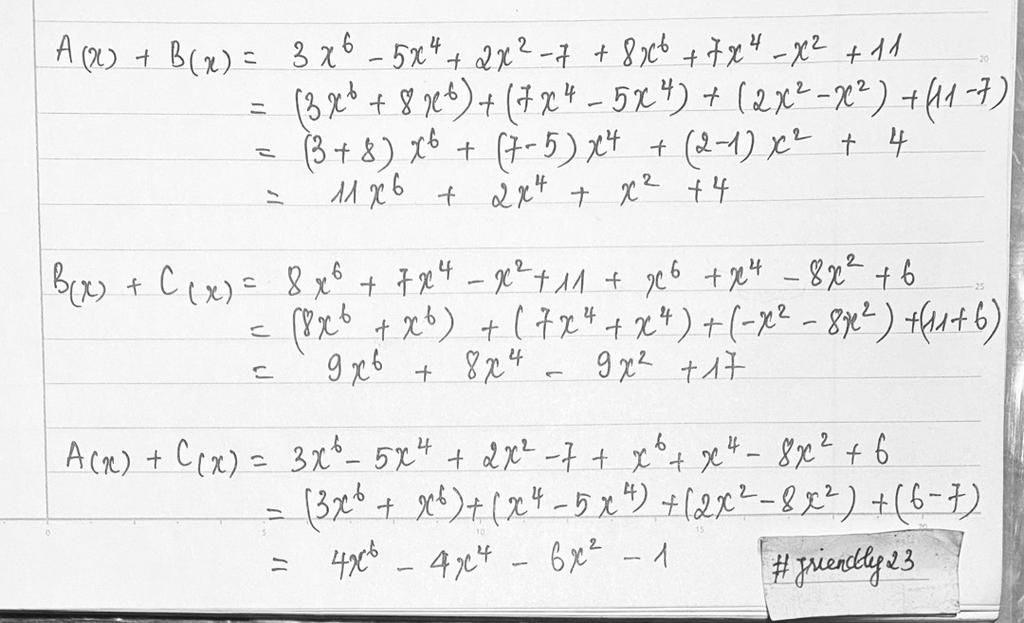 A(x) + B(x) = 3x⁶ - 5x⁴ + 2x² - 7 + 8x⁶ + 7x⁴ - x² + 11
= (3x⁶ + 8x⁶) + (7x⁴ - 5x⁴) + (2x² - x²) + (11 - 7)
= (3 + 8) x⁶ + (7 - 5) x⁴ + (2 - 1) x² + 4
= 11x⁶ + 2x⁴ + x² + 4
B(x) + C(x) = 8x⁶ + 7x⁴ - x² + 11 + x⁶ + x⁴ - 8x² + 6
= (8x⁶ + x⁶) + (7x⁴ + x⁴) + (-x² - 8x²) + (11 + 6)
= 9x⁶ + 8x⁴ - 9x² + 17
A(x) + C(x) = 3x⁶ - 5x⁴ + 2x² - 7 + x⁶ + x⁴ - 8x² + 6
= (3x⁶ + x⁶) + (x⁴ - 5x⁴) + (2x² - 8x²) + (6 - 7)
= 4x⁶ - 4x⁴ - 6x² - 1
#friendly23